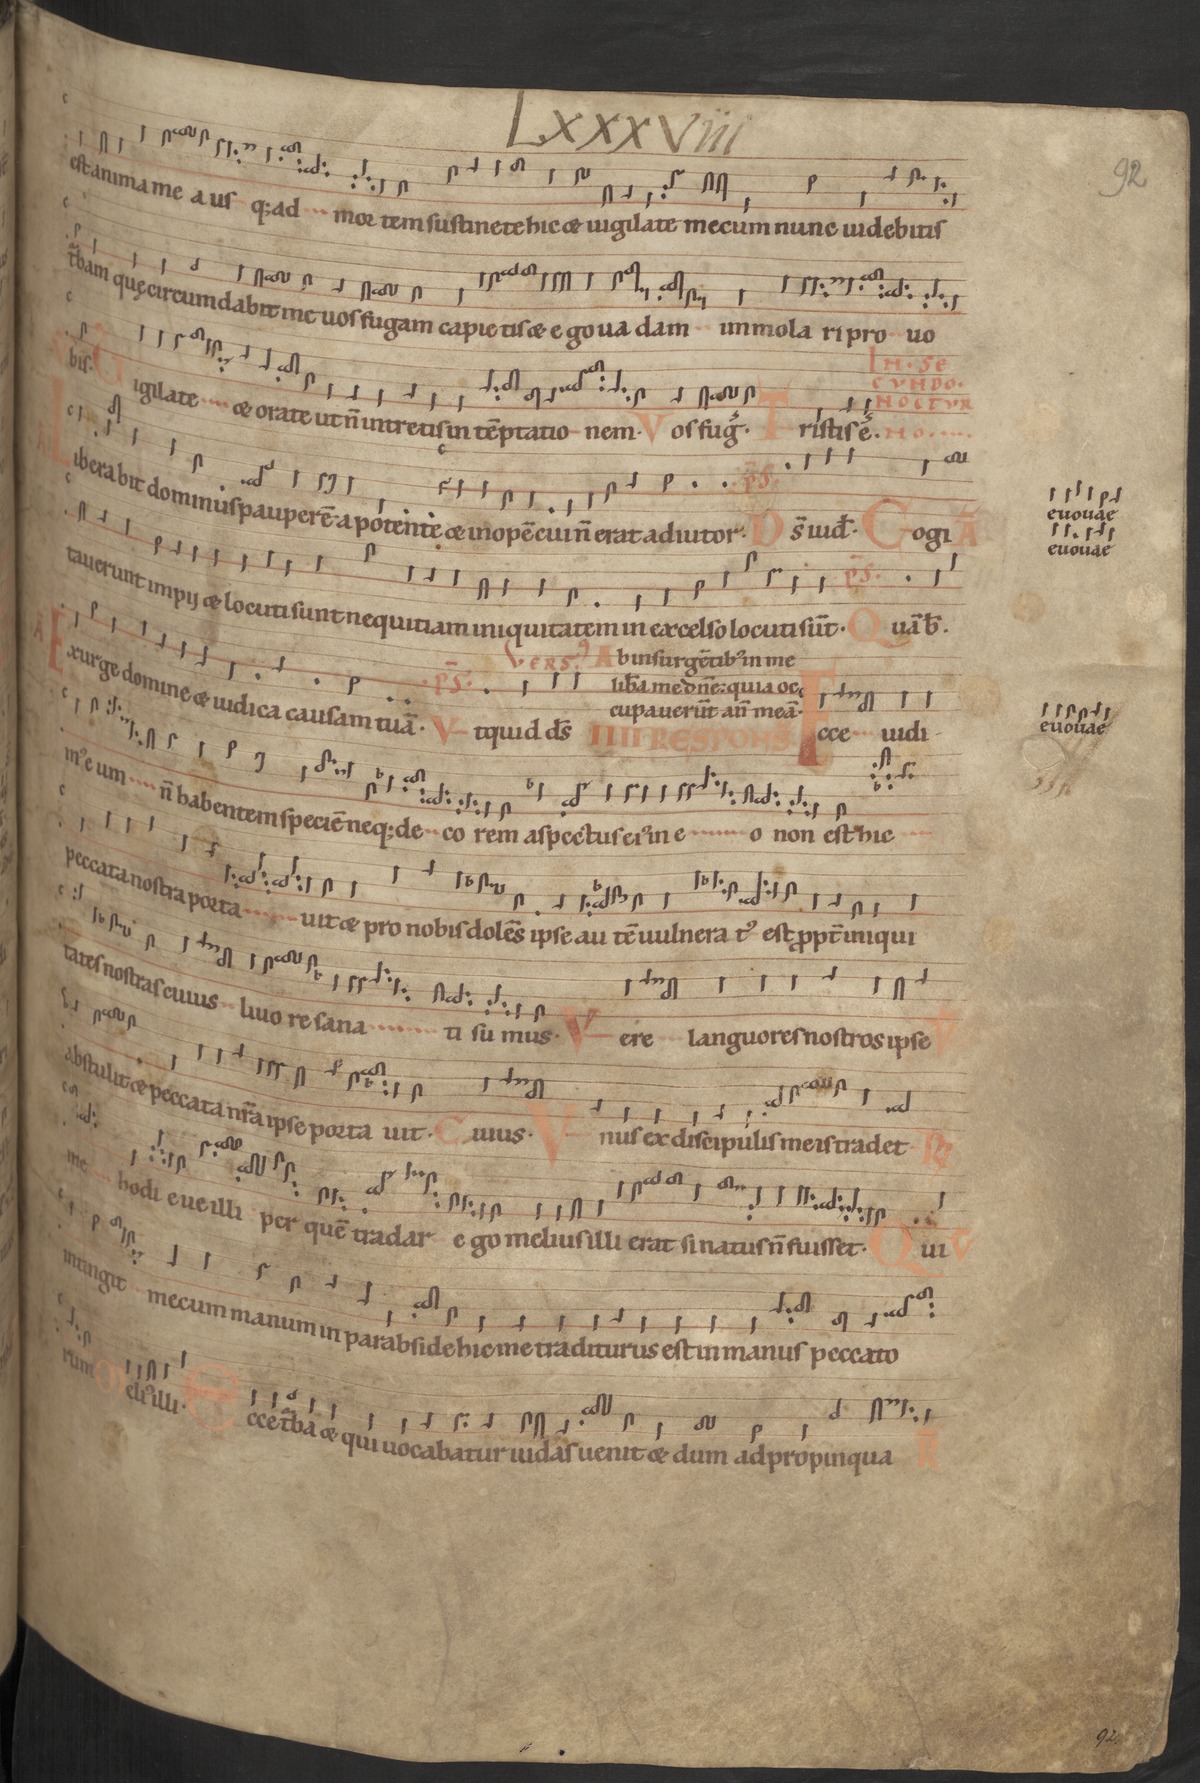 LXXXVIIII
92
est anima me a us q; ad mortem sustinete hic & uigilate mecum nunc uidebitis
t̃bam quę circumdabit me uos fugam capietis & ego uadam immola ri pro uo
bis. IN. SE
CUNDO.
NOCTUR
NO.
Uigilate & orate ut ñ intretis in tẽptatio nem. V os fuḡ. Tristis ẽ.
Liberabit dominus pauperẽ a potente & inopẽ cui ñ erat adiutor. p̄s. Ds̄ iud̄. Cogi A
euouae
euouae
tauerunt impij & locuti sunt nequitiam iniquitatem in excelso locuti sũt. p̄s. Quã b̄.
Exurge domine & iudica causam tuã. p̄s. Vt quid ds̄ Vers. Ab insurgẽtib; in me
lib̄a me dñe: quia oc
cupauerũt añ meã.
IIII RESPONS. Ecce uidi
euouae
m' eum ñ habentem speciẽ neq; de co rem aspectus ei' in e o non est hic
peccata nostra porta uit & pro nobis dolẽs ipse au tẽ uulnera t' est p̱pt̄ iniqui
tates nostras cuius liuo re sana ti su mus. V ere languores nostros ipse
abstulit & peccata nr̄a ipse porta uit. Cuius. Vnus ex discipulis meis tradet R
me hodi e ue illi per quẽ tradar e go melius illi erat si natus ñ fuisset. Qui V
intingit mecum manum in parabside hic me traditurus est in manus peccato
rum Meli' illi. Ecce t̃ba & qui uocabatur iudas uenit & dum adpropinqua R
92